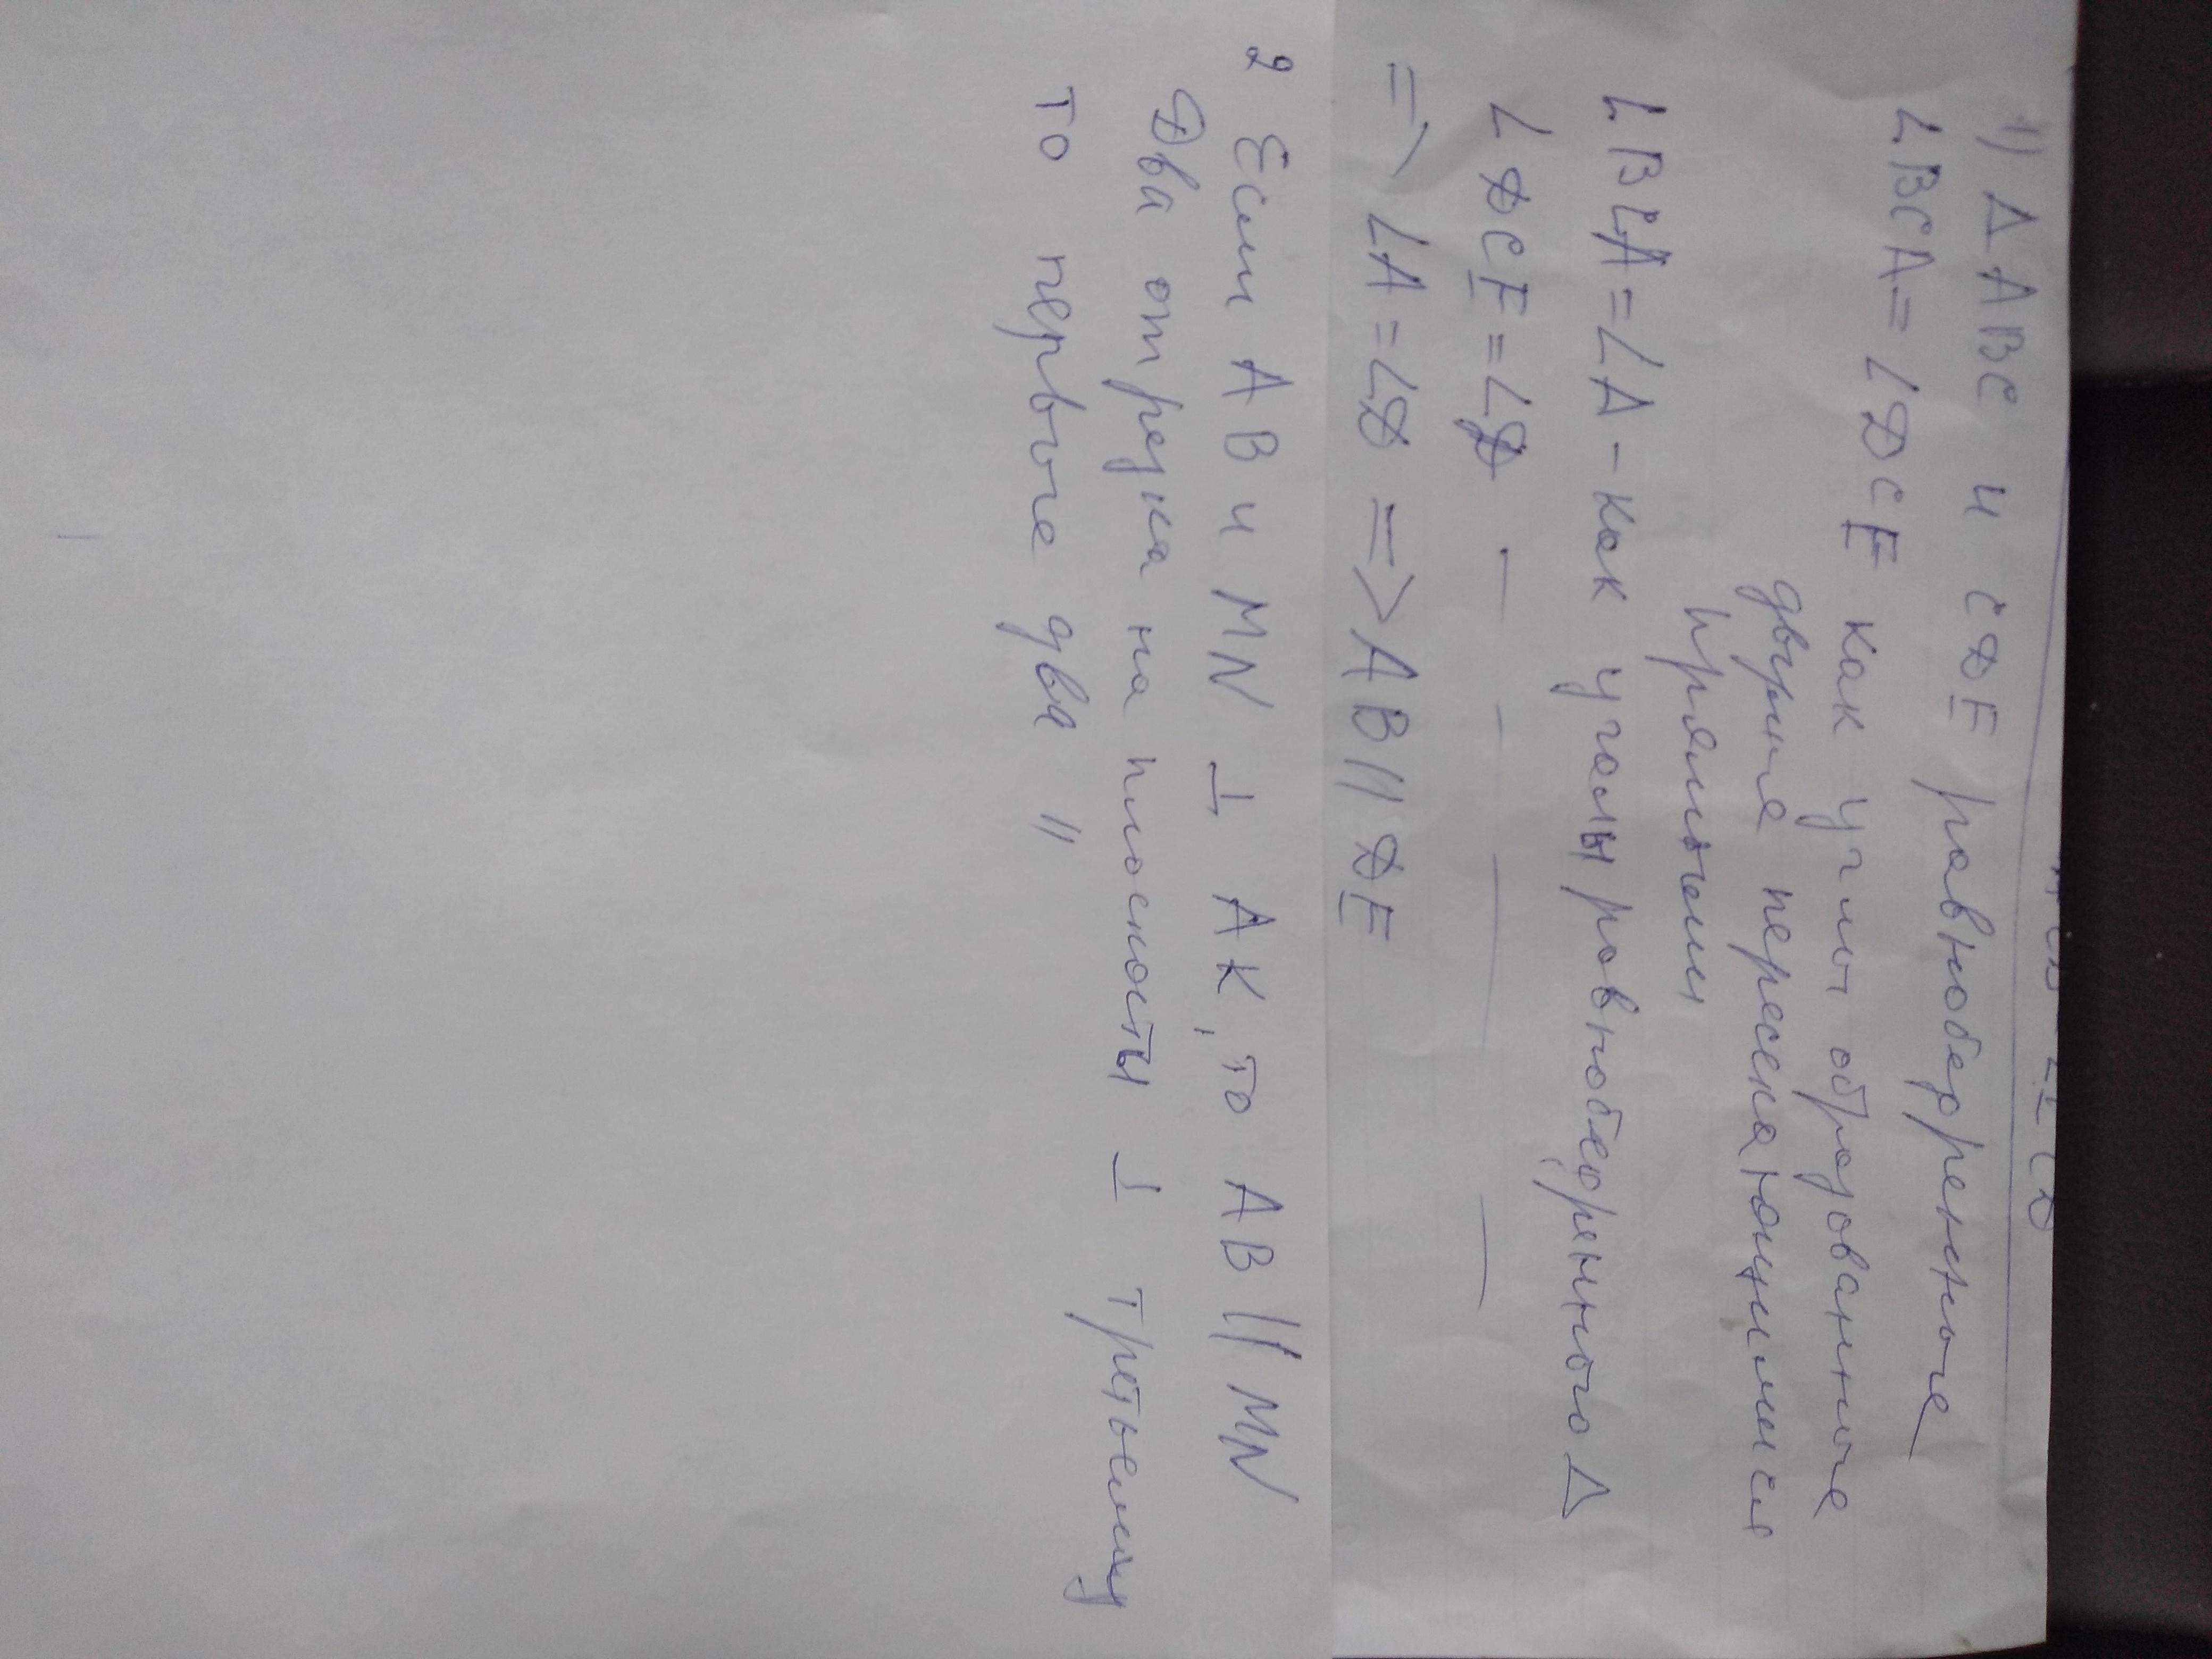 1) Δ ABC и CDE равнобедренные
∠BCA = ∠DCE как углы образованные
двумя пересекающимися
прямыми
∠BCA = ∠A - как углы равнобедренного Δ
∠DCE = ∠D — — — —
=> ∠A = ∠D => AB || DE
2 Если AB и MN ⊥ AK, то AB || MN
Два отрезка на плоскости ⊥ третьему
то первые два ||